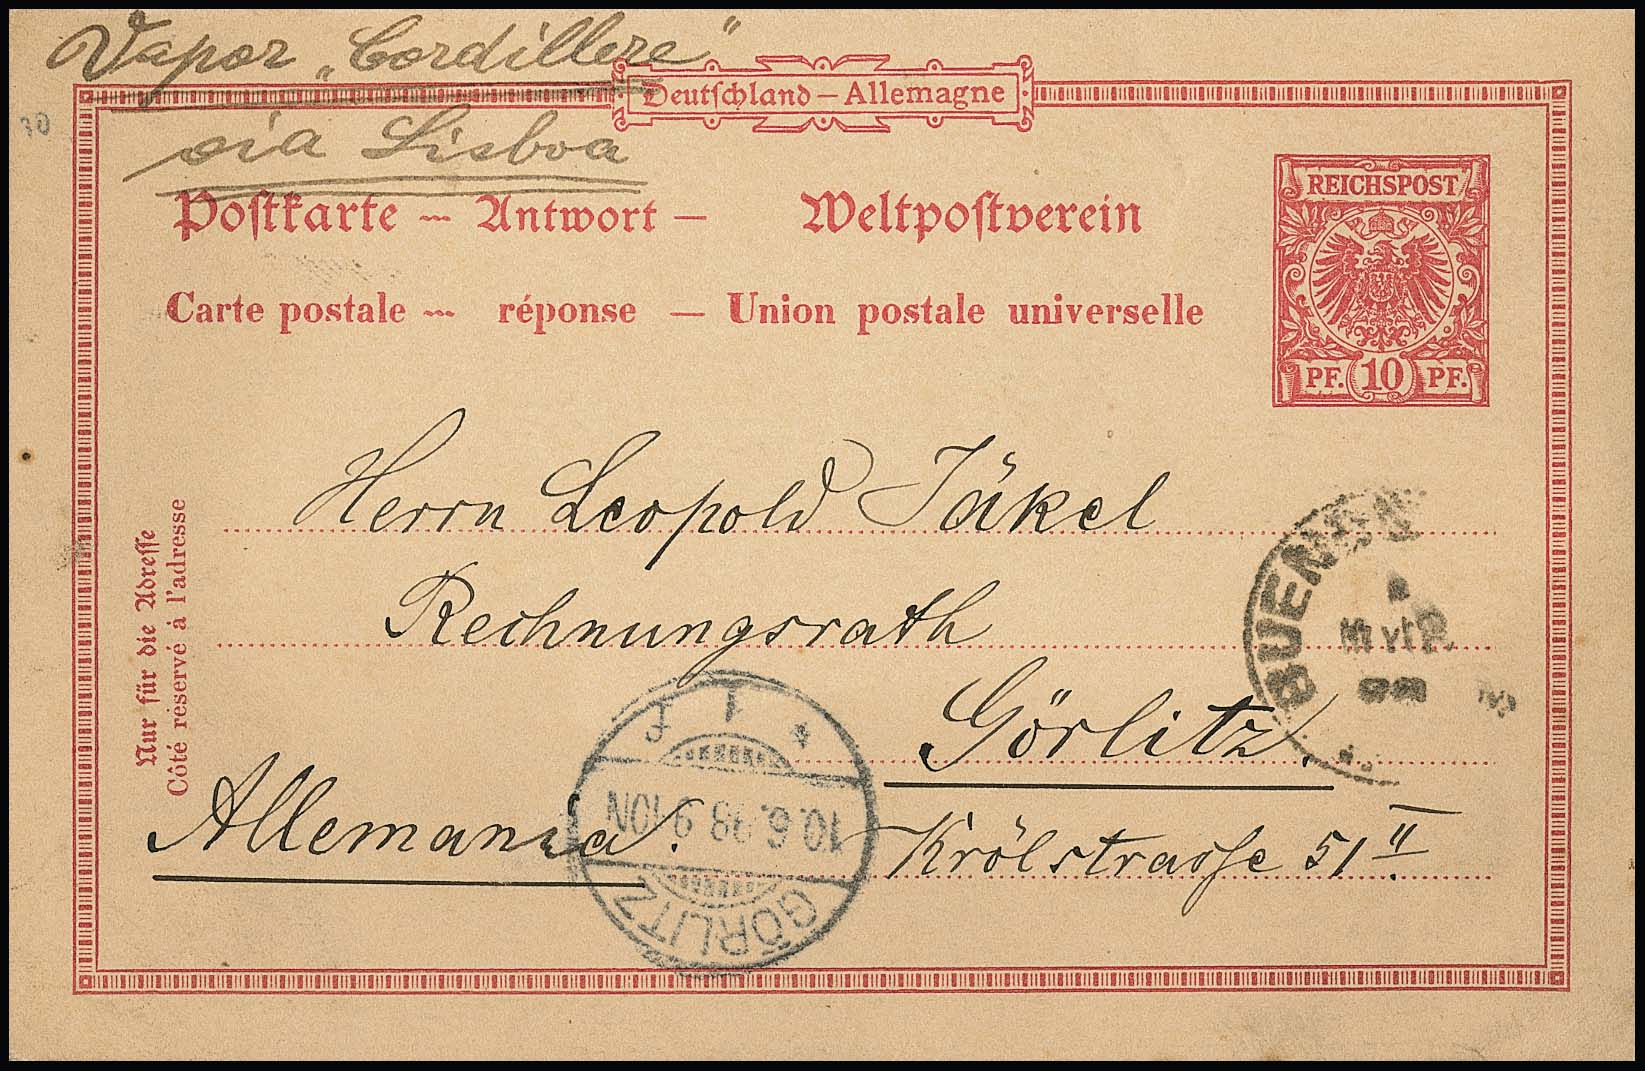 Vapor „Cordillere"
via Lisboa
Deutschland – Allemagne
Postkarte – Antwort – Weltpostverein
Carte postale – réponse – Union postale universelle
REICHSPOST
PF. 10 PF.
Nur für die Adresse
Côté réservé à l'adresse
Herrn Leopold Jäkel
Rechnungsrath
Görlitz.
Allemania.
Krölstrasse 51 II
BUENOS
98
GÖRLITZ
10.6.98. 9-10N
* 1 F